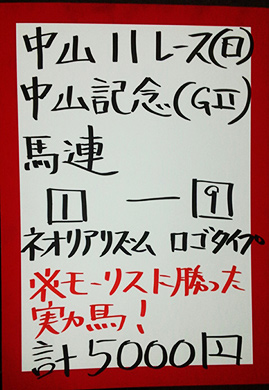 中山11レース(日)
中山記念(GII)
馬連
1 — 9
ネオリアリズム ロゴタイプ
※モーリスに勝った
実力馬!
計5000円